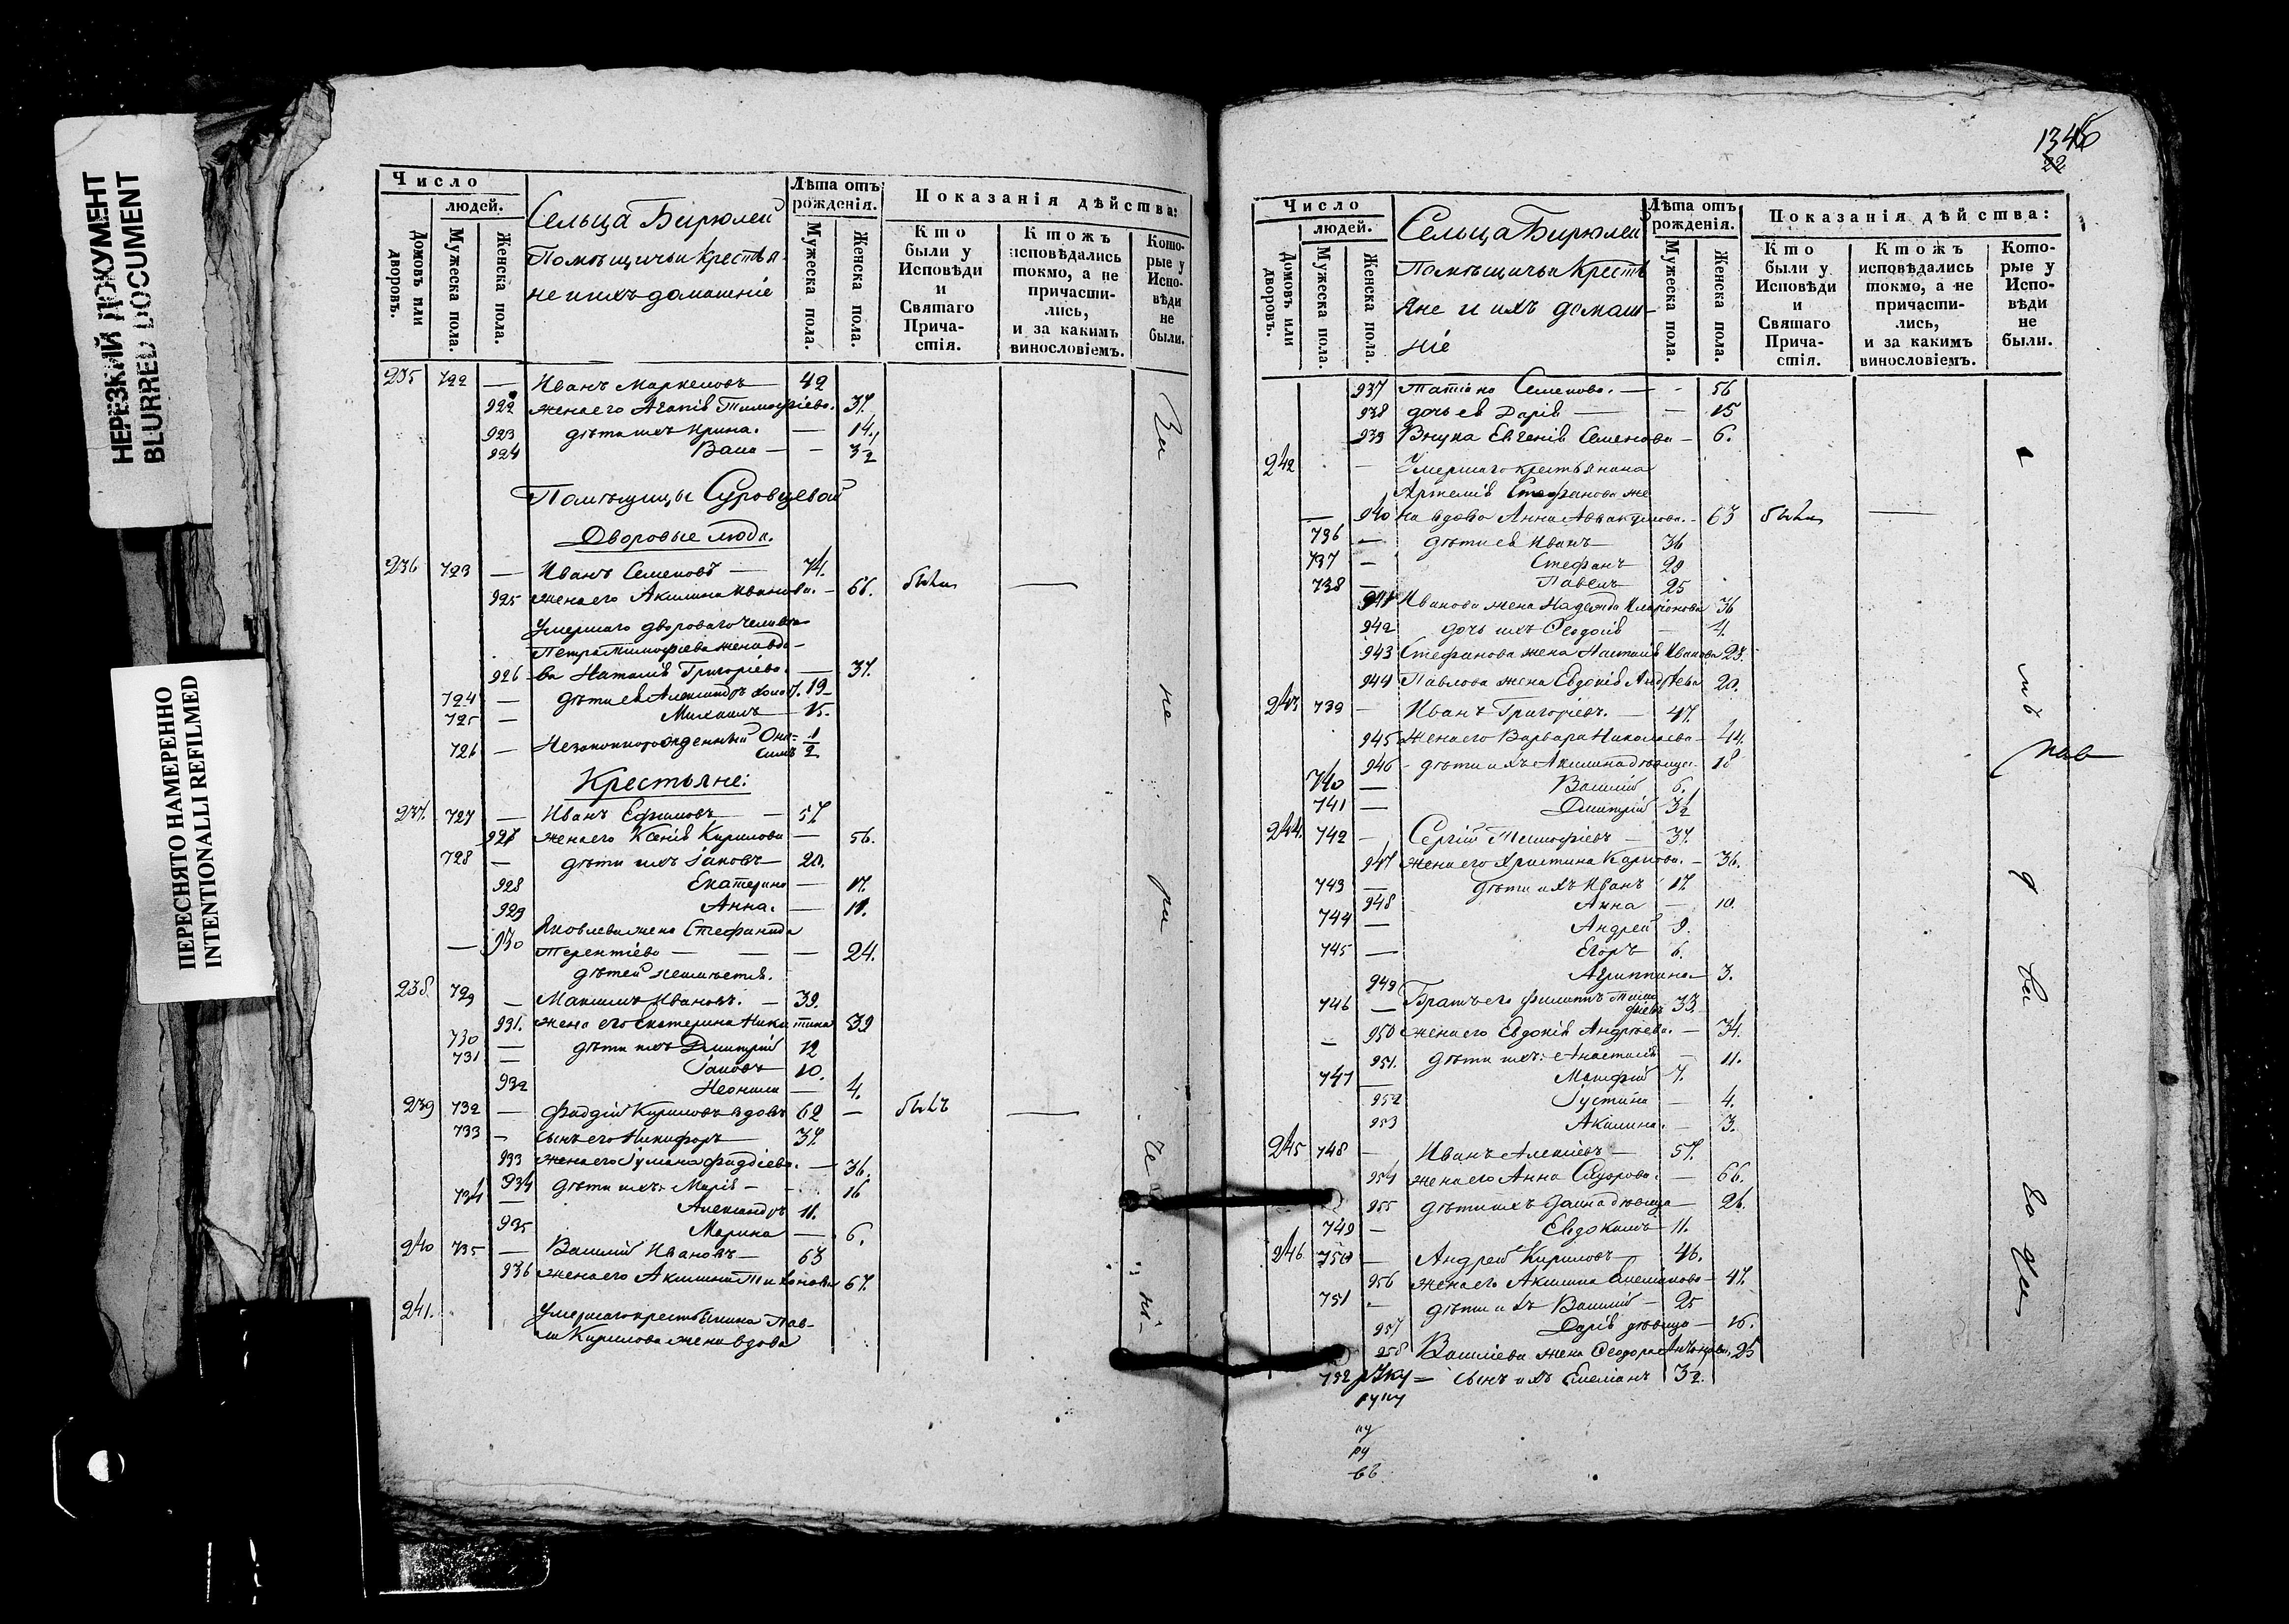 НЕРЕЗКИЙ ДОКУМЕНТ
BLURRED DOCUMENT
ПЕРЕСНЯТО НАМЕРЕННО
INTENTIONALLI REFILMED
Число
людей.
Домовъ или дворовъ.
Мужеска пола.
Женска пола.
Сельца Бирюлей
Помѣщичьи Крестья-
не и ихъ домашніе
Лѣта отъ рожденія.
Мужеска пола.
Женска пола.
Показанія дѣйства:
Кто были у Исповѣди и Святаго Причастія.
Ктожъ исповѣдались токмо, а не причастились, и за какимъ винословіемъ.
Которые у Исповѣди не были.
235 722 — Иванъ Маркеловъ — 42
922 жена его Агапія Тимофѣева. 37.
923 дѣти ихъ Ирина. — 14.
924 — —
Помѣщицы Суровцевой
Дворовые люди.
236 723 — Иванъ Семеновъ — 74.
925 жена его Акилина Иванова. — 66. были —
Умершаго двороваго человѣка
Петра Тимофѣева жена вдо-
926 ва Наталія Григорьева. — 37.
724 — дѣти ея Александръ холост. 19
725 — Михаилъ — 15.
726 — Незаконнорожденный Они-
симъ 1/2
Крестьяне:
237. 727 — Иванъ Ефимовъ — 57
927 жена его Ксенія Кирилова — 56.
728 — дѣти ихъ Іаковъ — 20.
928 Екатерина — 17.
929 Анна. — 11.
Яковлева жена Стефанида
— 930 Терентіева — — — 24.
дѣтей неимѣется.
238. 729 — Максимъ Ивановъ. — 39.
931. жена его Екатерина Никитина 39
730 — дѣти ихъ Дмитрій 12
731 — Іаковъ 10.
932 Неонила — 4.
239 732 — Фаддій Кириловъ вдовъ 62 — былъ —
733 — сынъ его Никифоръ — 37.
933 жена его Іуліана Фаддіева. — 36.
934 дѣти ихъ: Марія — 16
734 — Александръ 11.
935 Марина — 6.
240 735 — Василій Ивановъ — 63
936 жена его Акилина Тихонова 67.
241. Умершаго крестьянина Пав-
ла Кирилова жена вдова
1346
22
Число
людей.
Домовъ или дворовъ.
Мужеска пола.
Женска пола.
Сельца Бирюлей
Помѣщичьи Кресть
яне и ихъ домаш-
ніе
Лѣта отъ рожденія.
Мужеска пола.
Женска пола.
Показанія дѣйства:
Кто были у Исповѣди и Святаго Причастія.
Ктожъ исповѣдались токмо, а не причастились, и за какимъ винословіемъ.
Которые у Исповѣди не были.
937 Татіана Семенова. — - 56
938 дочь ея Дарія — — 15
939 Внука Евгенія Семенова — 6.
242 — Умершаго крестьянина
Артемія Стефанова же
— 940 на вдова Анна Аввакумова. — 63 были —
736 — дѣти ея Иванъ — 36
737 — Стефанъ 29
738 — Павелъ 25
941 Иванова жена Надежда Иларіонова 36
942 дочь ихъ Ѳеодосія — 4.
943 Стефанова жена Настасія Иванова 23.
944 Павлова жена Евдокія Андреева 20.
243 739 — Иванъ Григоріевъ. — 47.
945 жена его Варвара Николаева — 44.
946 - дѣти ихъ Акилина дѣвица. 18
740 — Василій 6.
741 — Дмитрій
244. 742 — Сергій Тимофѣевъ — 37.
947 жена его Христина Карпова. — 36.
743 — дѣти ихъ Иванъ 17.
948 Анна — 10.
744 — Андрей 9.
745 — Егоръ 6.
949 Агриппина — 3.
746 — Братъ его Филиппъ Тимо
фѣевъ 33.
— 950 жена его Евдокія Андреева. — 34.
951. дѣти ихъ: Анастасія — 11.
747 — 7.
952 Іустина — 4.
953 Акилина. — 3.
245 748 — Иванъ Алексіевъ — 57.
954 жена его Анна Сидорова. — 66.
955 дѣти ихъ дѣвица — 26.
749 — Евдокимъ — 11.
246 750 — Андрей Кириловъ 46.
956 жена его Акилина — 47.
751 - дѣти ихъ Василій — 25
957 Дарія дѣвица — 16.
958 Василіева жена Ѳеодора 25
752 — сынъ ихъ Емеліанъ
руку
ру
въ